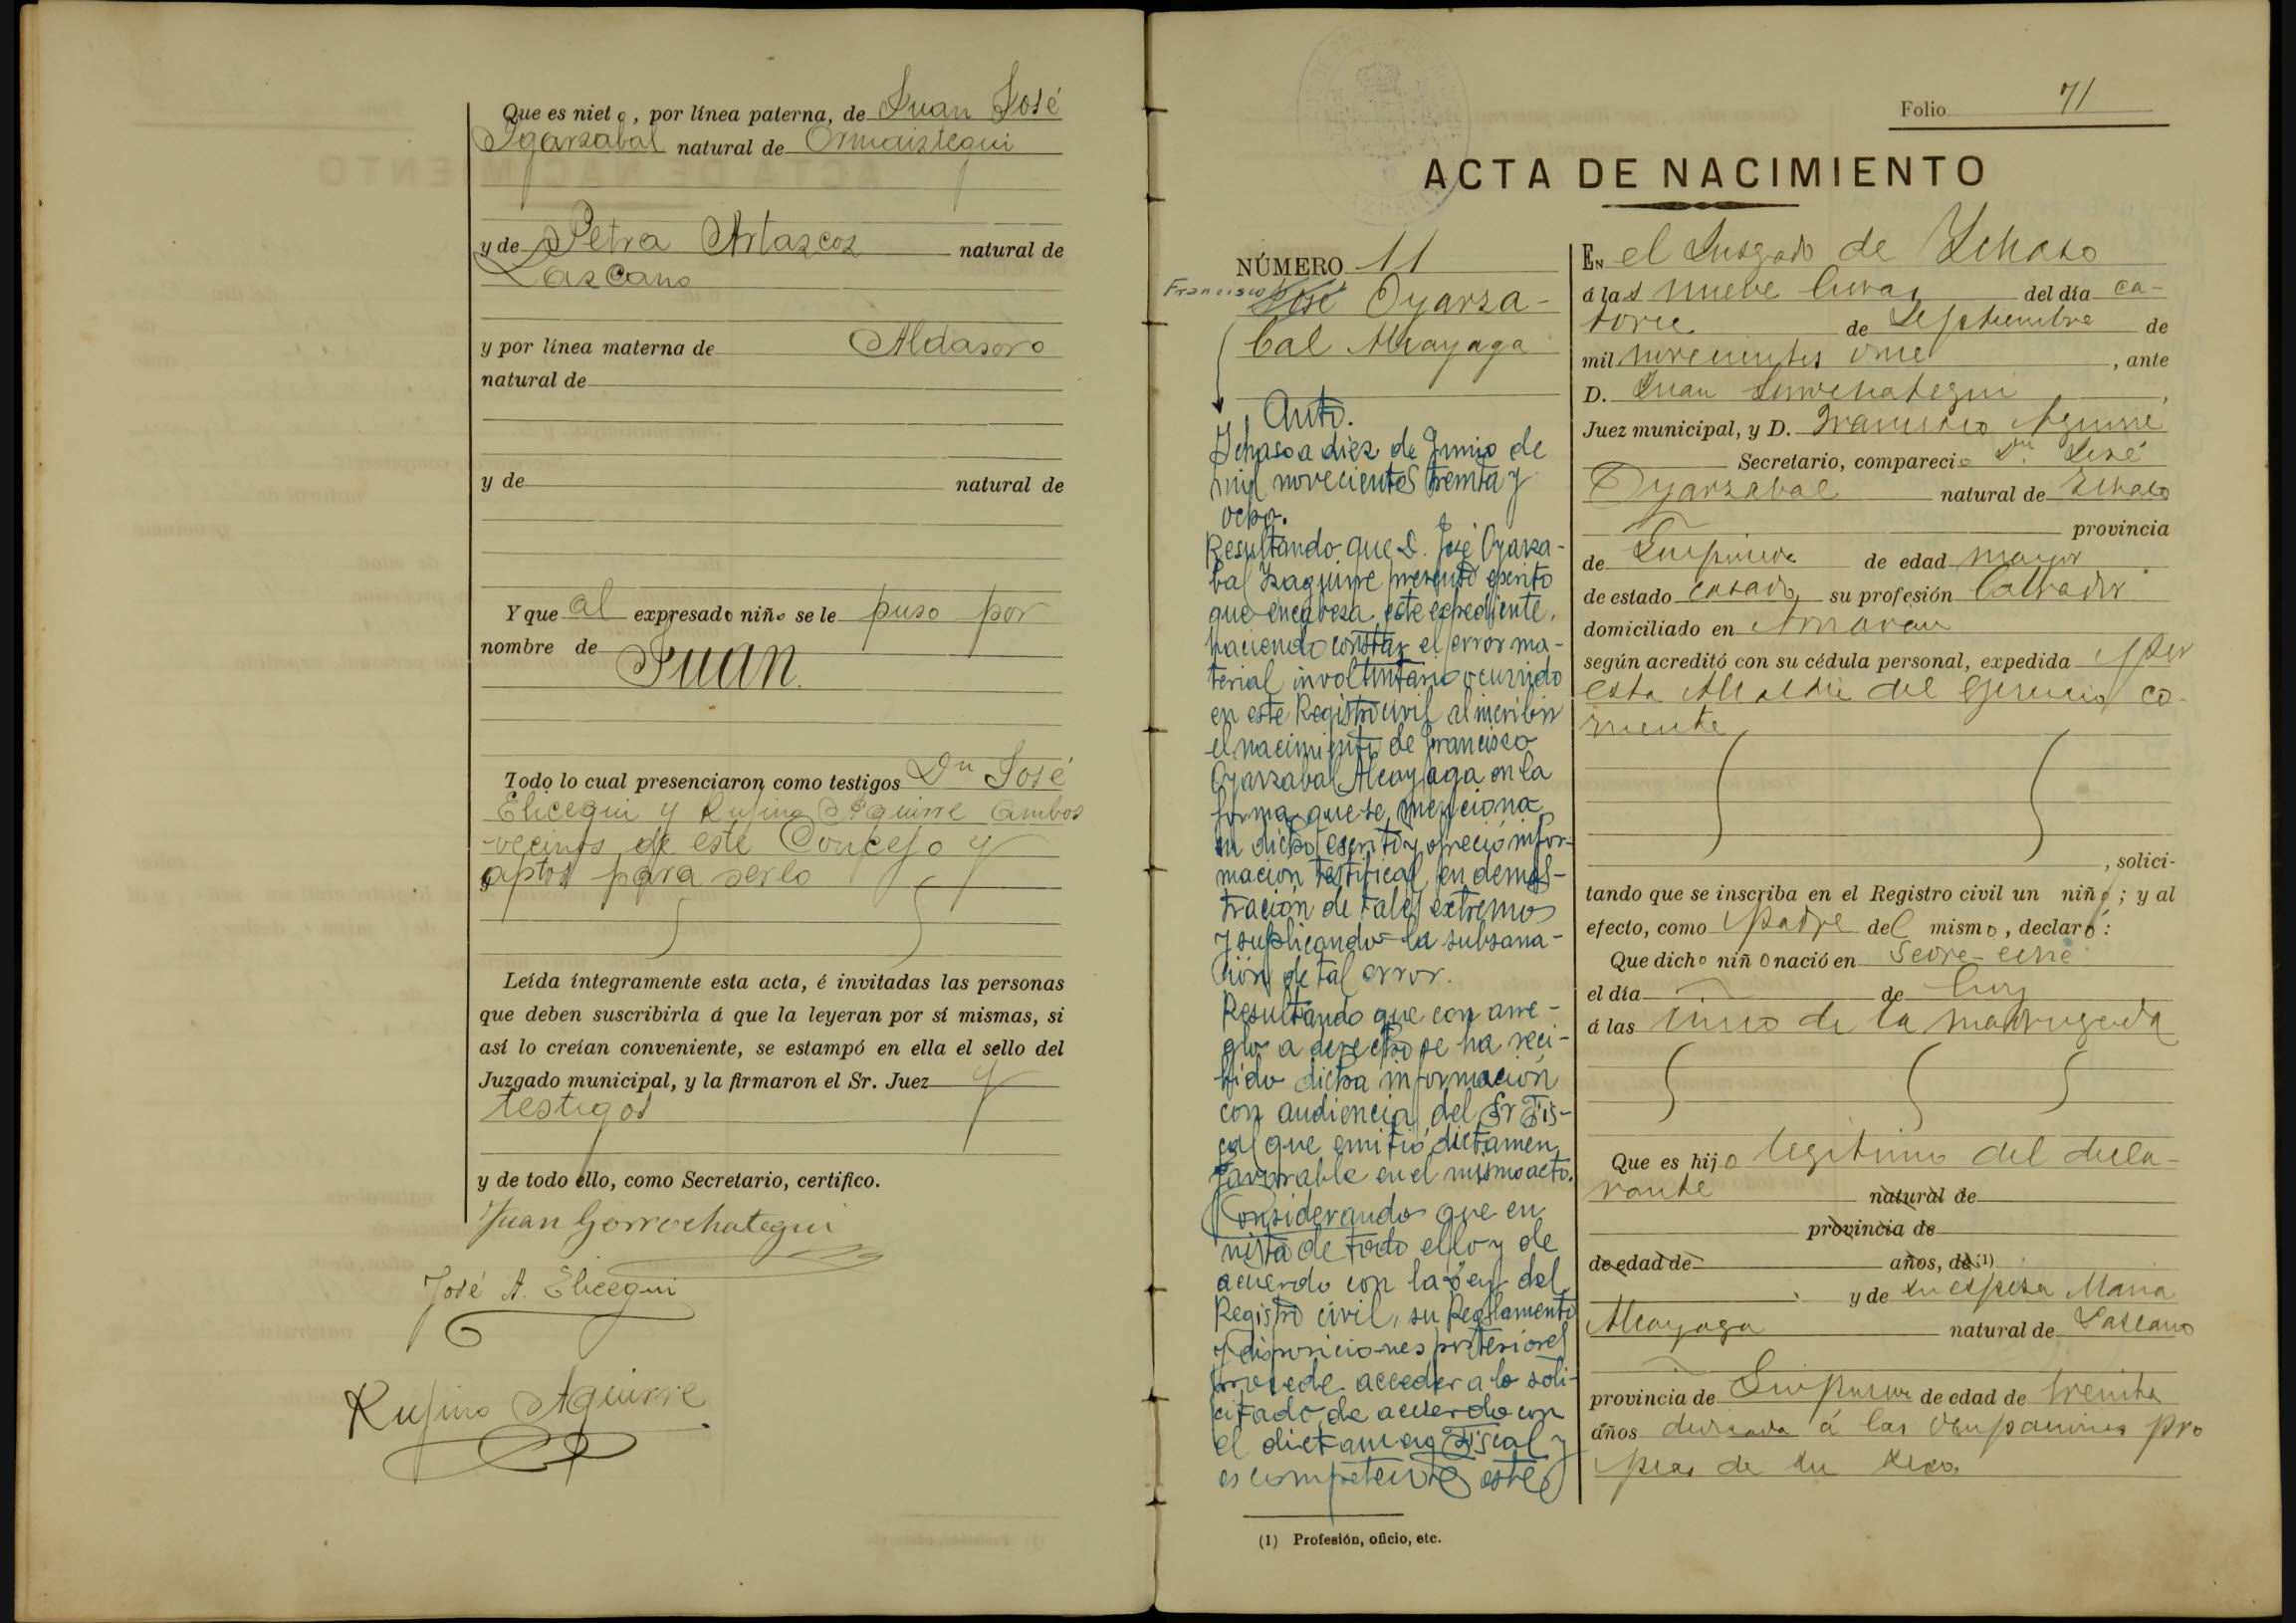 Que es nieto, por línea paterna, de Juan José
Ygarzabal natural de Ormaiztegui
y de Petra Artazcoz natural de
Lazcano
y por línea materna de Aldasoro
natural de
y de natural de
Y que al expresado niño se le puso por
nombre de Juan.
Todo lo cual presenciaron como testigos Dn José
Elicegui y Rufino Aguirre ambos
vecinos de este Concejo y
aptos para serlo
Leída íntegramente esta acta, é invitadas las personas
que deben suscribirla á que la leyeran por sí mismas, si
así lo creían conveniente, se estampó en ella el sello del
Juzgado municipal, y la firmaron el Sr. Juez y
testigos
y de todo ello, como Secretario, certifico.
Juan Gorrochategui
José A. Elicegui
Rufino Aguirre
Folio 71
ACTA DE NACIMIENTO
NÚMERO 11
Francisco José Oyarza-
bal Alcayaga
Auto.
Ichaso a diez de Junio de
mil novecientos treinta y
ocho.
Resultando que D. José Oyarza-
bal Izaguirre presentó escrito
que encabeza este expediente,
haciendo constar el error ma-
terial involuntario ocurrido
en este Registro civil al inscribir
el nacimiento de Francisco
Oyarzabal Alcayaga en la
forma que se menciona
en dicho escrito y ofreció infor-
mación testifical en demos-
tración de tales extremos
y suplicando la subsana-
ción de tal error.
Resultando que con arre-
glo a derecho se ha reci-
bido dicha información
con audiencia del Sr Fis-
cal que emitió dictamen
favorable en el mismo acto.
Considerando que en
vista de todo ello y de
acuerdo con la Ley del
Registro civil, su Reglamento
y disposiciones posteriores
procede acceder a lo soli-
citado de acuerdo con
el dictamen Fiscal y
es competente este
(1) Profesión, oficio, etc.
En el Juzgado de Ichaso
á las nueve horas del día ca-
torce de Septiembre de
mil novecientos once, ante
D. Juan Gorrochategui,
Juez municipal, y D. Francisco Aguirre
Secretario, compareció Dn José
Oyarzabal natural de Ichaso
provincia
de Guipúzcoa de edad mayor
de estado casado, su profesión labrador
domiciliado en
según acreditó con su cédula personal, expedida por
esta Alcaldia del ejercicio co-
rriente
, solici-
tando que se inscriba en el Registro civil un niño; y al
efecto, como padre del mismo, declaró:
Que dicho niño nació en
el día de hoy
á las cinco de la madrugada
Que es hijo legitimo del decla-
rante natural de
provincia de
de edad de años, de (1)
y de su esposa Maria
Alcayaga natural de Lazcano
provincia de Guipuzcoa de edad de treinta
años dedicada á las ocupaciones pro
pias de su sexo